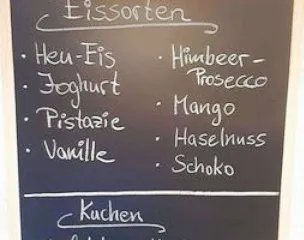 Eissorten
· Heu-Eis
· Joghurt
· Pistazie
· Vanille
· Himbeer-
Prosecco
· Mango
· Haselnuss
· Schoko
Kuchen